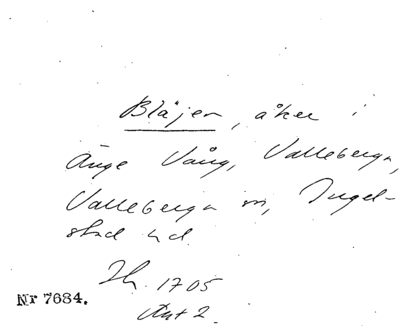 Bläjen, åker i
Änge Vång, Valleberga,
Valleberga sn, Ingel-
stad hd.
Lh. 1705
Akt 2.
Nr 7684.